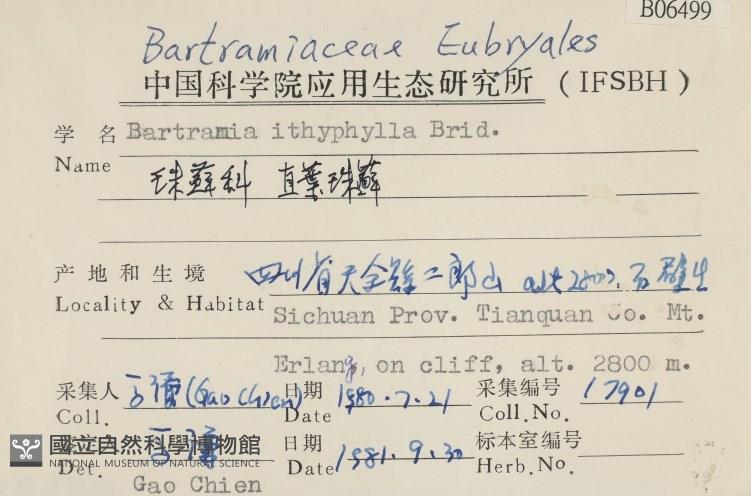 B06499
Bartramiaceae Eubryales
中国科学院应用生态研究所 (IFSBH)
学 名 Bartramia ithyphylla Brid.
Name
珠蘚科 直葉珠蘚
产地和生境 四川省天全縣二郎山 alt 2800, 石壁生
Locality & Habitat Sichuan Prov. Tianquan Co. Mt.
Erlang, on cliff, alt. 2800 m.
采集人 (Gao Chien) 日期 1980.7.21 采集编号 17901
Coll. Date Coll.No.
國立自然科學博物館 日期 1981.9.30 标本室编号
NATIONAL MUSEUM OF NATURAL SCIENCE
Det. Date Herb.No.
Gao Chien